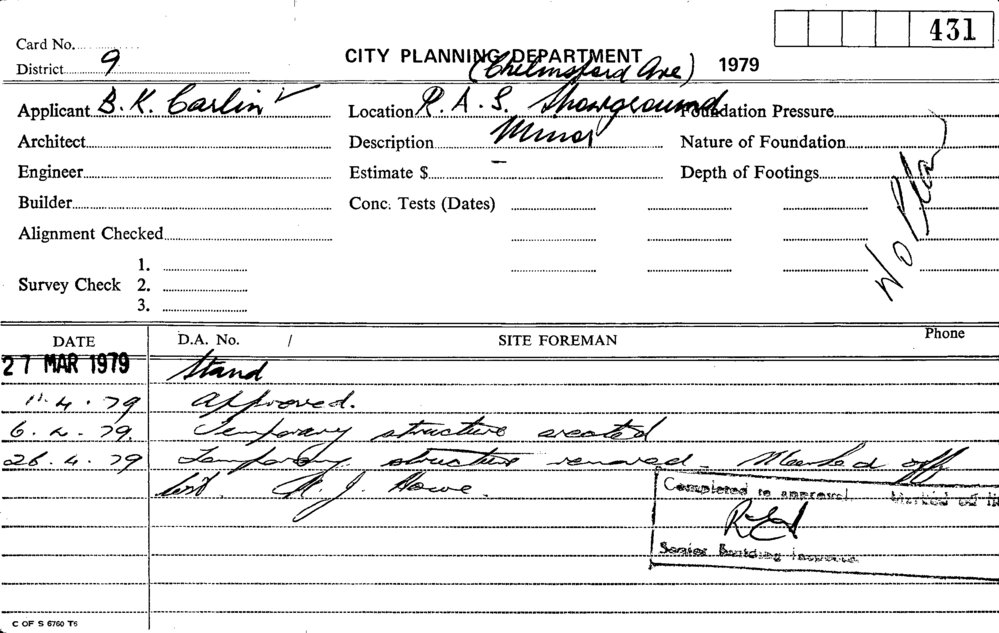 431
Card No.
CITY PLANNING DEPARTMENT
District 9
(Chelmsford Ave)
1979
Applicant B. K. Carlin
Location R. A. S. Showground
Foundation Pressure
Architect
Description Minor
Nature of Foundation
Engineer
Estimate $ –
Depth of Footings
Builder
Conc. Tests (Dates)
No Plan
Alignment Checked
Survey Check
1.
2.
3.
DATE
D.A. No. /
SITE FOREMAN
Phone
27 MAR 1979
Stand
11.4.79 Approved.
6.4.79. Temporary structure erected
26.4.79 Temporary structure removed. Marked off
list. R. J. Howe.
Completed to approval Marked off
Senior Building
C OF S 6760 T6